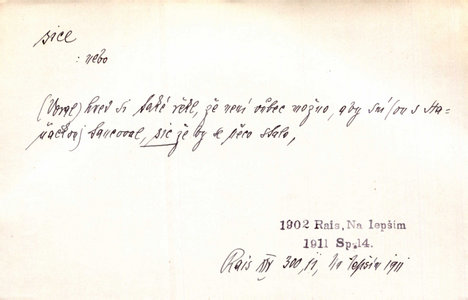 sice
: nebo
(Voral) hned si také řekl, že není vůbec možno, aby s ní (on s Ha-
načkou) tancoval, sic že by se něco stalo,
1902 Rais, Na lepším
1911 Sp.14.
Rais XIV 300, ji, Na lepším 1911